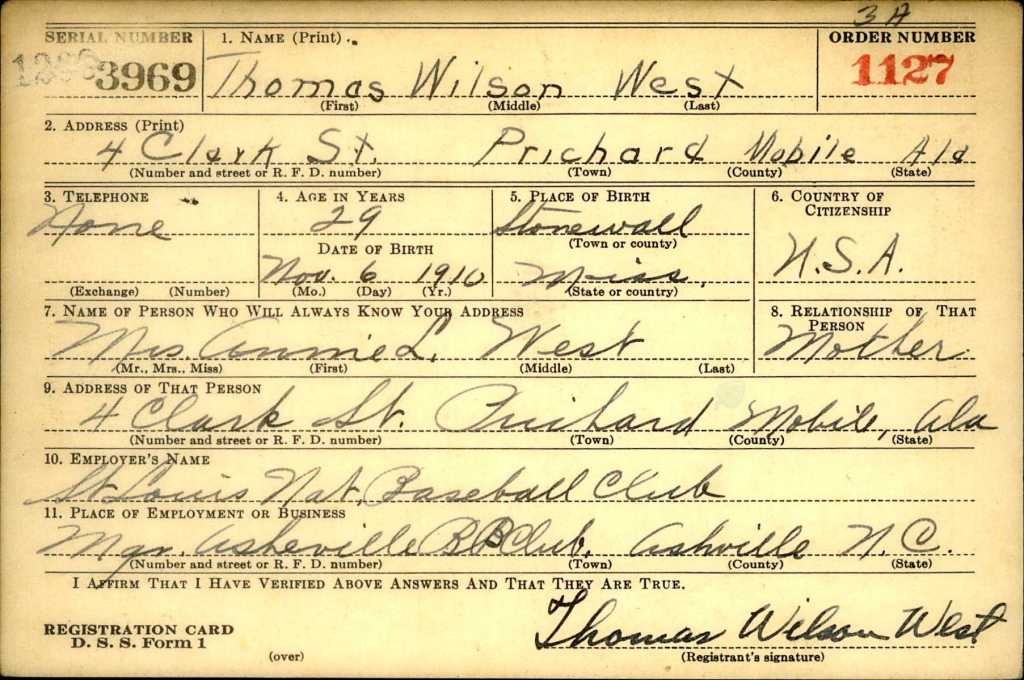 3A
SERIAL NUMBER 1. NAME (Print) ORDER NUMBER
3969 Thomas Wilson West 1127
(First) (Middle) (Last)
2. ADDRESS (Print)
4 Clark St. Prichard Mobile Ala
(Number and street or R. F. D. number) (Town) (County) (State)
3. TELEPHONE 4. AGE IN YEARS 5. PLACE OF BIRTH 6. COUNTRY OF CITIZENSHIP
None 29 Stonewall U.S.A.
(Town or county)
DATE OF BIRTH
Nov. 6 1910 Miss.
(Exchange) (Number) (Mo.) (Day) (Yr.) (State or country)
7. NAME OF PERSON WHO WILL ALWAYS KNOW YOUR ADDRESS 8. RELATIONSHIP OF THAT PERSON
Mrs. Annie L. West Mother
(Mr., Mrs., Miss) (First) (Middle) (Last)
9. ADDRESS OF THAT PERSON
4 Clark St. Prichard Mobile, Ala
(Number and street or R. F. D. number) (Town) (County) (State)
10. EMPLOYER'S NAME
St Louis Nat. Baseball Club
11. PLACE OF EMPLOYMENT OR BUSINESS
Mgr. Asheville BB Club. Ashville N.C.
(Number and street or R. F. D. number) (Town) (County) (State)
I AFFIRM THAT I HAVE VERIFIED ABOVE ANSWERS AND THAT THEY ARE TRUE.
REGISTRATION CARD Thomas Wilson West
D. S. S. Form 1
(over) (Registrant's signature)